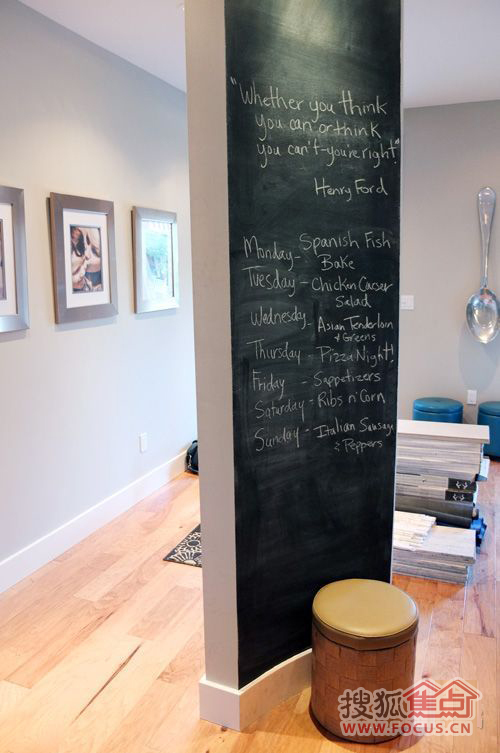 "Whether you think
you can or think
you can't-you're right"
Henry Ford
Monday- Spanish Fish
Bake
Tuesday - Chicken Caeser
Salad
Wednesday- Asian Tenderloin
& Greens
Thursday - Pizza Night!
Friday - Sappetizers
Saturday - Ribs n' Corn
Sunday - Italian Sausage
& Peppers
搜狐焦点
WWW.FOCUS.CN